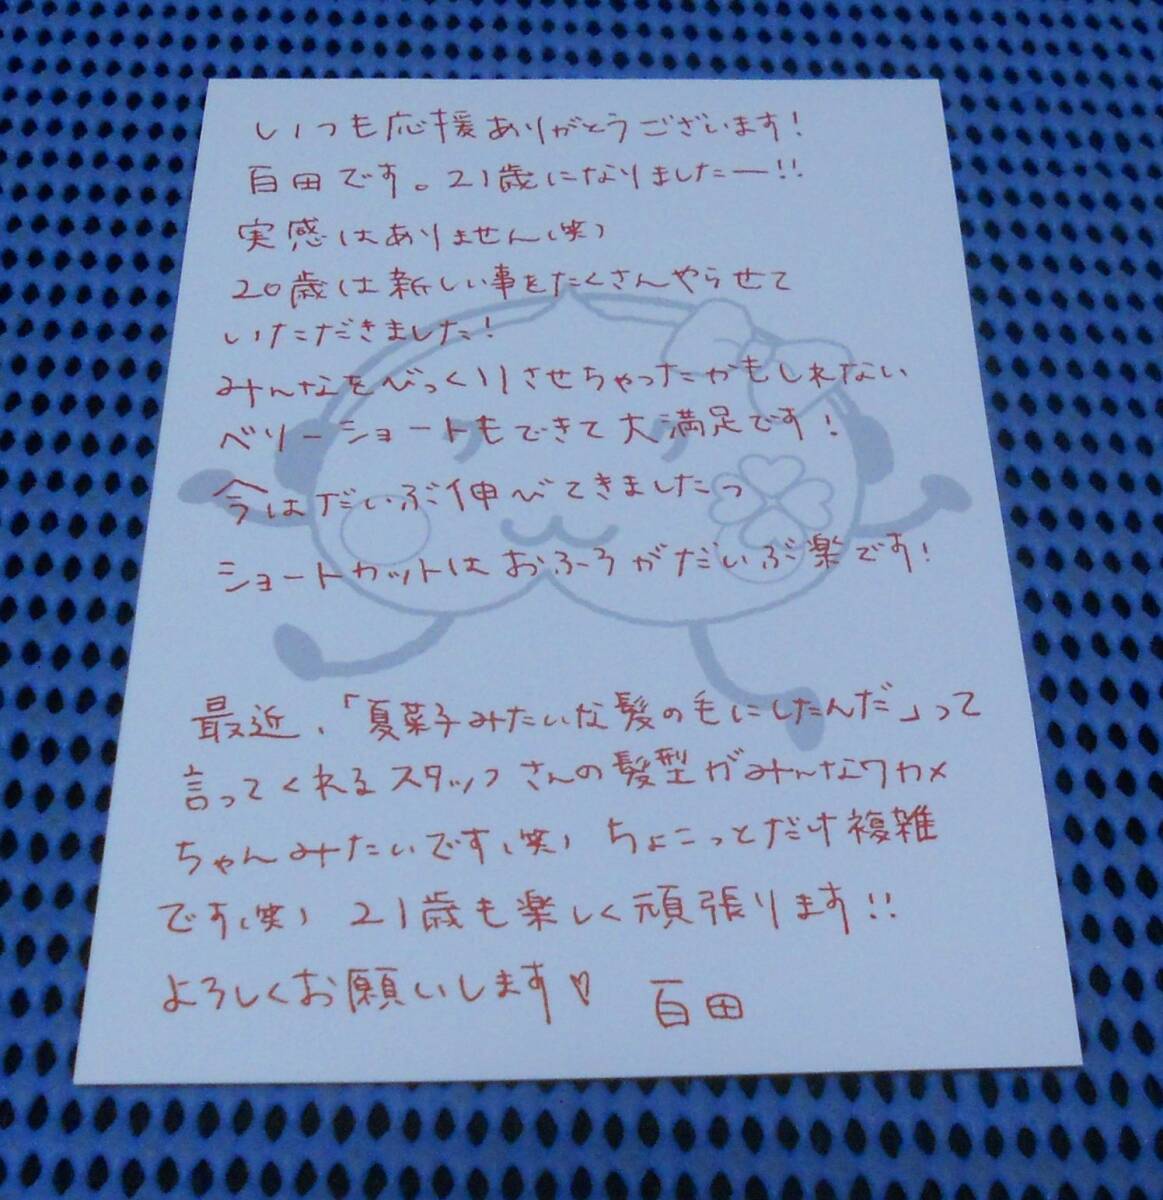 いつも応援ありがとうございます!
百田です。21歳になりましたー!!
実感はありません(笑)
20歳は新しい事をたくさんやらせて
いただきました!
みんなをびっくりさせちゃったかもしれない
ベリーショートもできて大満足です!
今はだいぶ伸びてきましたっ
ショートカットはおふろがだいぶ楽です!
最近、「夏菜子みたいな髪の毛にしたんだ」って
言ってくれるスタッフさんの髪型がみんなワカメ
ちゃんみたいです(笑) ちょこっとだけ複雑
です(笑) 21歳も楽しく頑張ります!!
よろしくお願いします♡ 百田